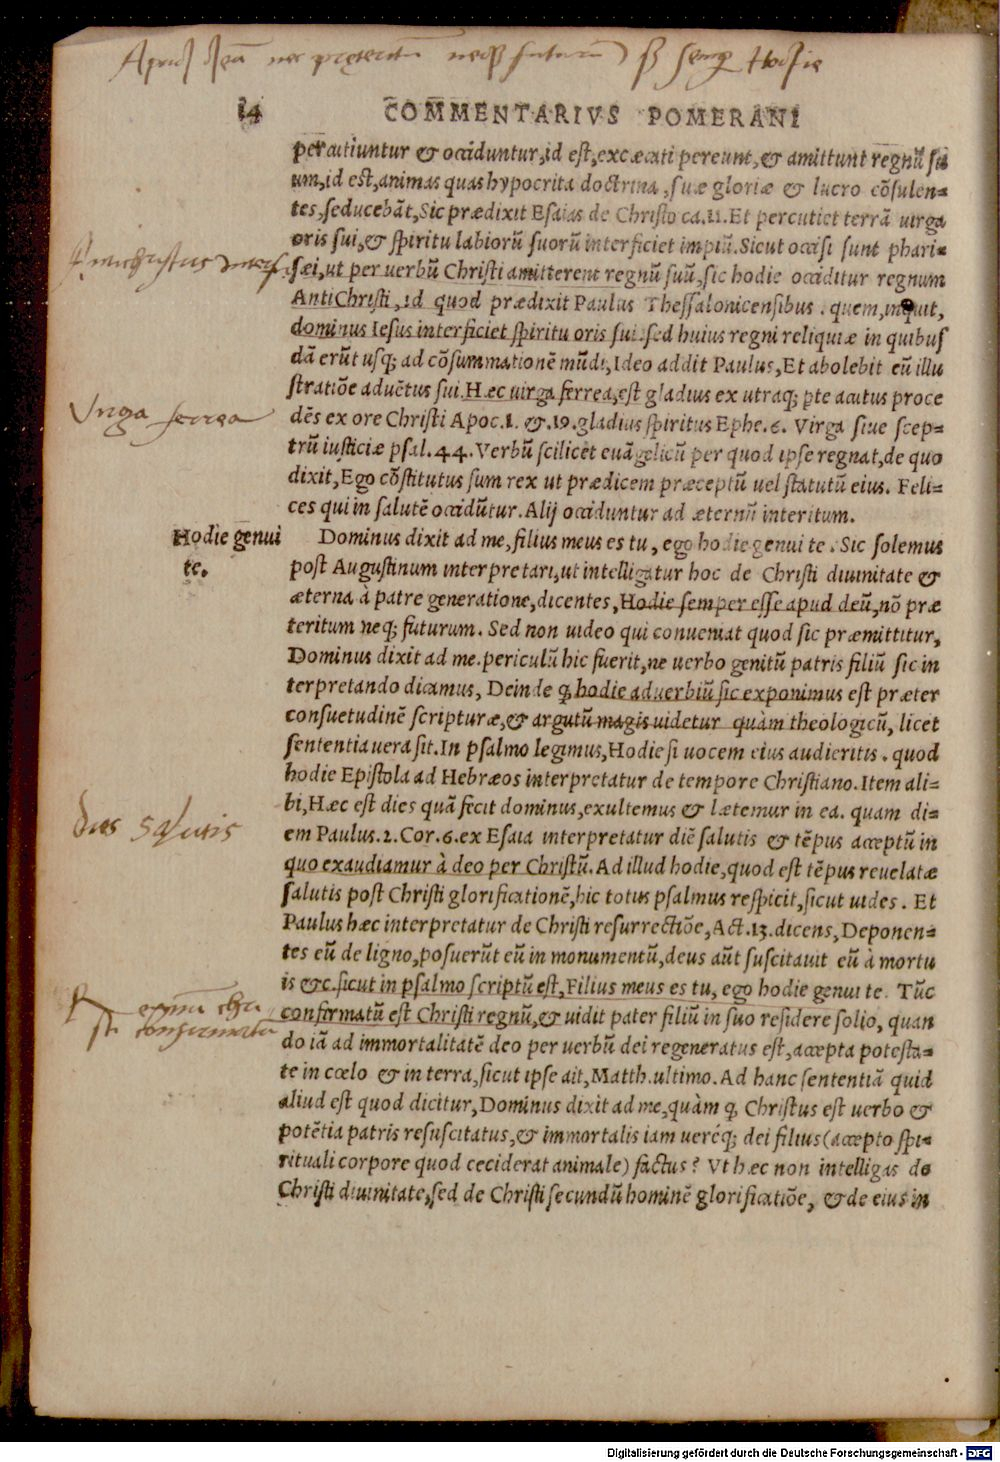 Apud deū nec pręteritū neq̃ futurū sꝫ semp Hodie
14 COMMENTARIVS POMERANI
percutiuntur & occiduntur, id est, excæcati pereunt, & amittunt regnũ su
um, id est, animas quas hypocrita doctrina, suæ gloriæ & lucro cõsulen=
tes, seducebãt, Sic prædixit Esaias de Christo ca. 11. Et percutiet terrã uirga
oris sui, & spiritu labiorũ suorũ interficiet impiũ. Sicut occisi sunt phari=
sæi, ut per uerbũ Christi amitterent regnũ suũ, sic hodie occiditur regnum
AntiChristi, id quod prædixit Paulus Thessalonicensibus. quem, inquit,
dominus Iesus interficiet spiritu oris sui. sed huius regni reliquiæ in quibus
dã erũt usq; ad cõsummationẽ mũdi, Ideo addit Paulus, Et abolebit eũ illu
stratiõe aduẽtus sui. Hæc uirga ferrea, est gladius ex utraq; pte acutus proce
Virga ferrea
dẽs ex ore Christi Apoc. 1. & .19. gladius spiritus Ephe. 6. Virga siue scep=
trũ iusticiæ psal. 44. Verbũ scilicet euãgelicũ per quod ipse regnat, de quo
dixit, Ego cõstitutus sum rex ut prædicem præceptũ uel statutũ eius. Feli=
ces qui in salutẽ occidũtur. Alij occiduntur ad æternũ interitum.
Hodie genui
te.
Dominus dixit ad me, filius meus es tu, ego hodie genui te. Sic solemus
post Augustinum interpretari, ut intelligatur hoc de Christi diuinitate &
æterna à patre generatione, dicentes, Hodie semper esse apud deũ, nõ præ
teritum neq; futurum. Sed non uideo qui conueniat quod sic præmittitur,
Dominus dixit ad me. periculũ hic fuerit, ne uerbo genitũ patris filiũ sic in
terpretando dicamus, Deinde q̃ hodie aduerbiũ sic exponimus est præter
consuetudinẽ scripturæ, & argutũ magis uidetur quàm theologicũ, licet
sententia uera sit. In psalmo legimus, Hodie si uocem eius audieritis. quod
hodie Epistola ad Hebræos interpretatur de tempore Christiano. Item ali=
bi, Hæc est dies quã fecit dominus, exultemus & lætemur in ea. quam di=
dies salutis
em Paulus. 2. Cor. 6. ex Esaia interpretatur diẽ salutis & tẽpus acceptũ in
quo exaudiamur à deo per Christũ. Ad illud hodie, quod est tẽpus reuelatæ
salutis post Christi glorificationẽ, hic totus psalmus respicit, sicut uides. Et
Paulus hæc interpretatur de Christi resurrectiõe, Act. 13. dicens, Deponen=
tes eũ de ligno, posuerũt eũ in monumentũ, deus aũt suscitauit eũ à mortu
is &c. sicut in psalmo scriptũ est, Filius meus es tu, ego hodie genui te. Tũc
confirmatũ est Christi regnũ, & uidit pater filiũ in suo residere solio, quan
do iã ad immortalitatẽ deo per uerbũ dei regeneratus est, accepta potesta=
te in cœlo & in terra, sicut ipse ait, Matth. ultimo. Ad hanc sententiã quid
aliud est quod dicitur, Dominus dixit ad me, quàm q̃ Christus est uerbo &
potẽtia patris resuscitatus, & immortalis iam uereq́; dei filius (accepto spi=
rituali corpore quod ceciderat animale) factus? Vt hæc non intelligas de
Christi diuinitate, sed de Christi secundũ hominẽ glorificatiõe, & de eius in
Digitalisierung gefördert durch die Deutsche Forschungsgemeinschaft - DFG